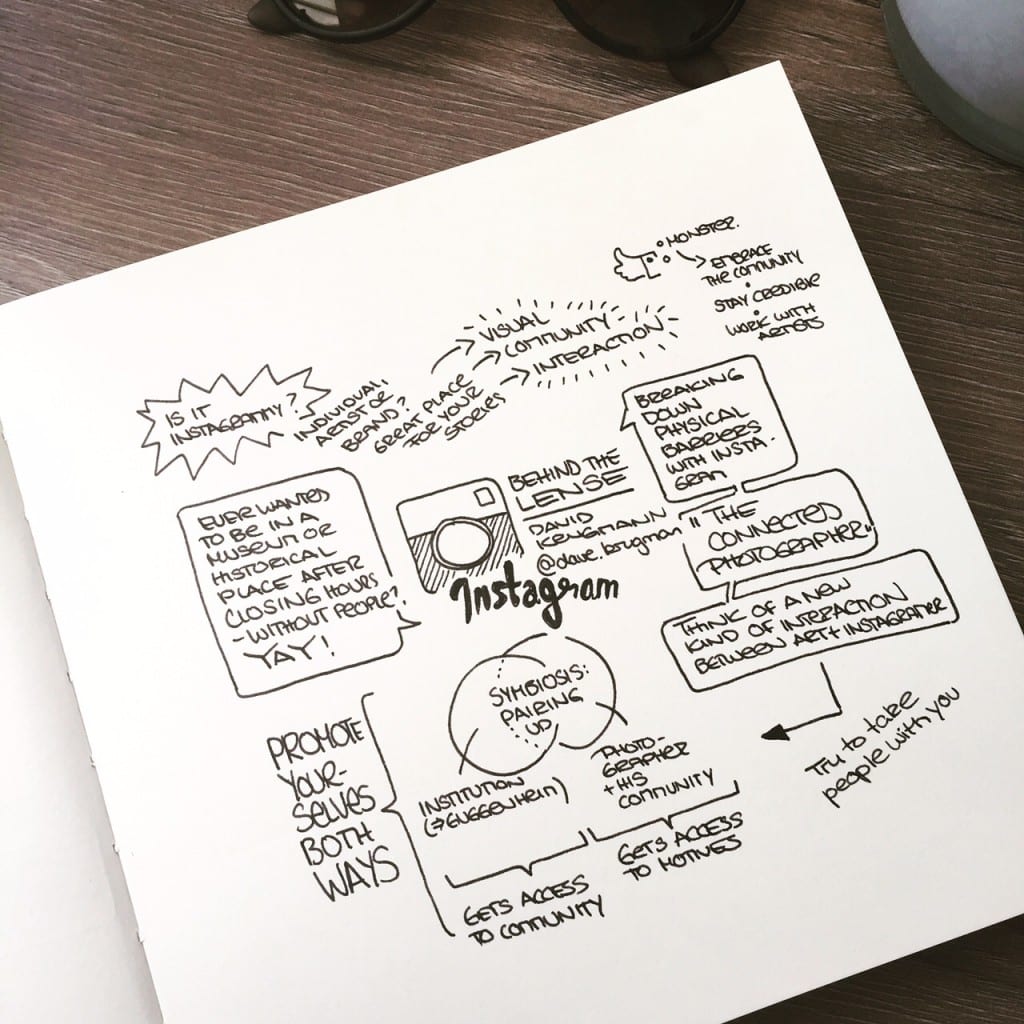 MONSTER.
EMBRACE
THE COMMUNITY
STAY CREDIBLE
WORK WITH
ARTISTS
VISUAL
COMMUNITY
INTERACTION
IS IT
INSTAGRAMMY?
INDIVIDUAL,
ARTIST OR
BRAND?
GREAT PLACE
FOR YOUR
STORIES
BREAKING
DOWN
PHYSICAL
BARRIERS
WITH INSTA-
GRAM
EVER WANTED
TO BE IN A
MUSEUM OR
HISTORICAL
PLACE AFTER
CLOSING HOURS
- WITHOUT PEOPLE?
YAY!
BEHIND THE
LENSE
DAVID
@dave.krugman
Instagram
"THE
CONNECTED
PHOTOGRAPHER"
THINK OF A NEW
KIND OF INTERACTION
BETWEEN ART + INSTAGRAMER
Try to take
people with you
SYMBIOSIS:
PAIRING
UP
INSTITUTION
(⇒ GUGGENHEIM)
PHOTO-
GRAPHER
+ HIS
COMMUNITY
PROMOTE
YOUR-
SELVES
BOTH
WAYS
GETS ACCESS
TO COMMUNITY
GETS ACCESS
TO MOTIVES